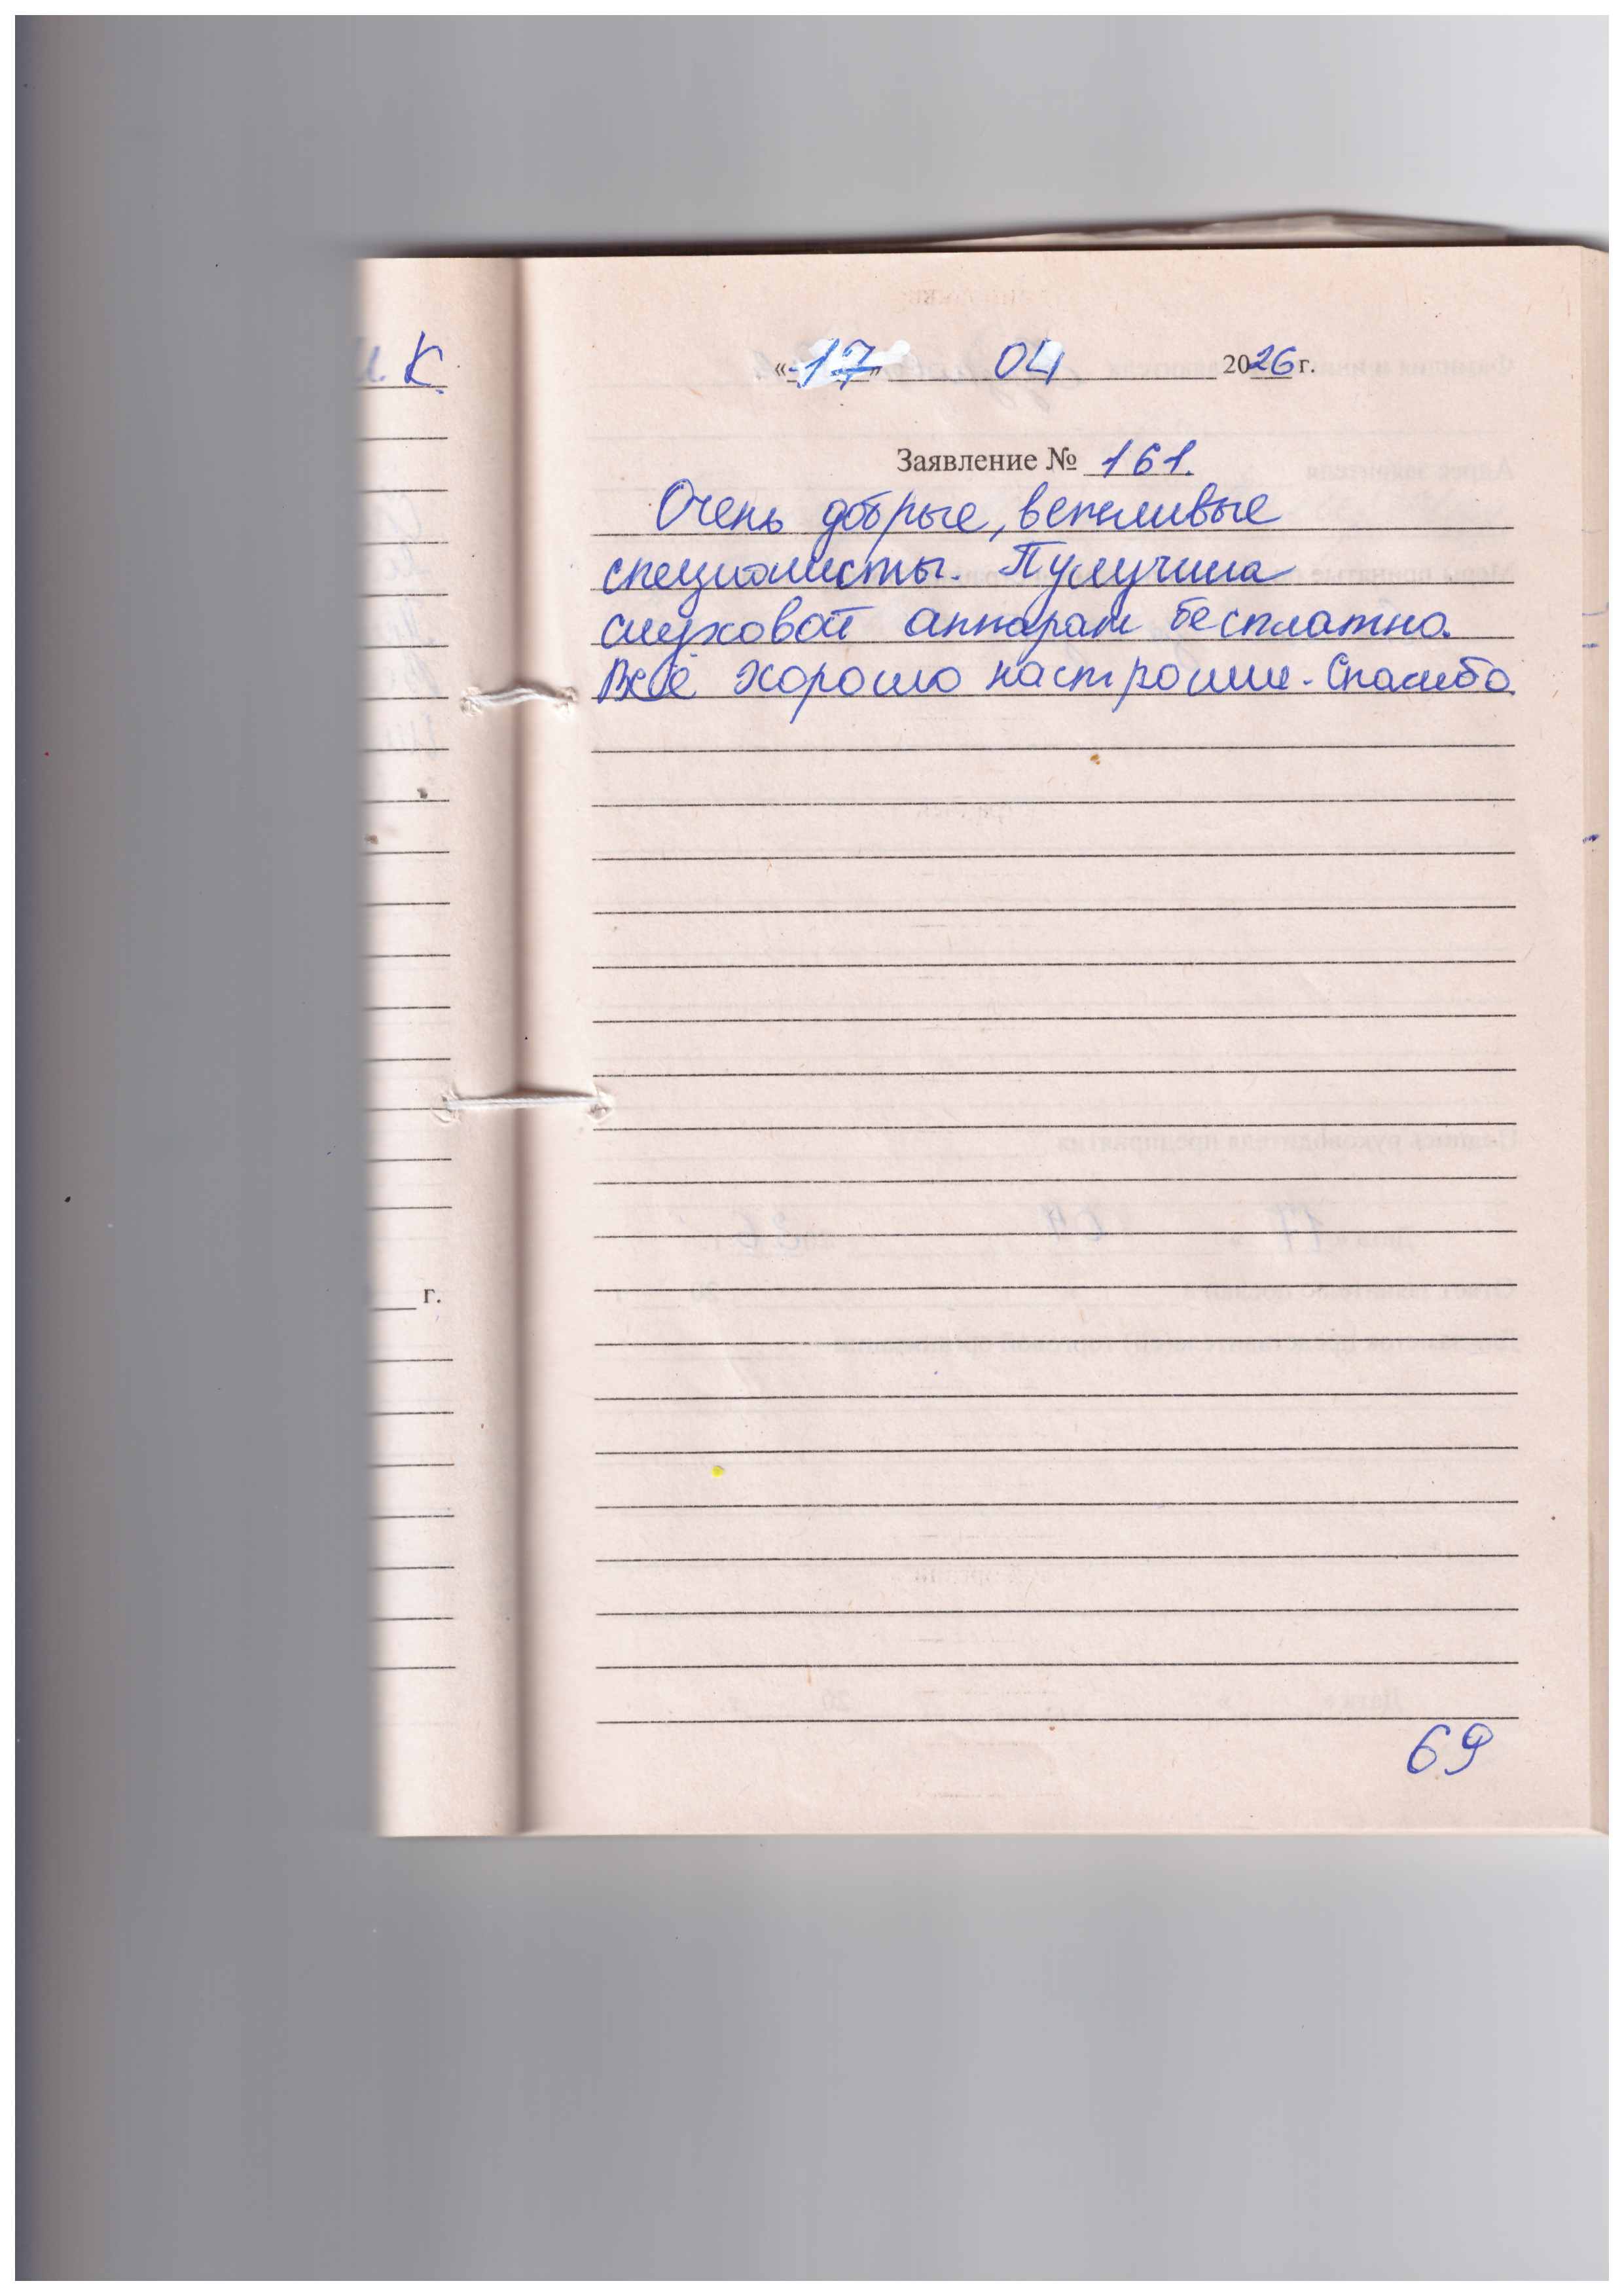 И К
«17» 04 2026 г.
Заявление № 161.
Очень добрые, вежливые
специалисты. Пулучила
слуховой аппарат бесплатно.
Всё хорошо настроили. Спасибо.
г.
69